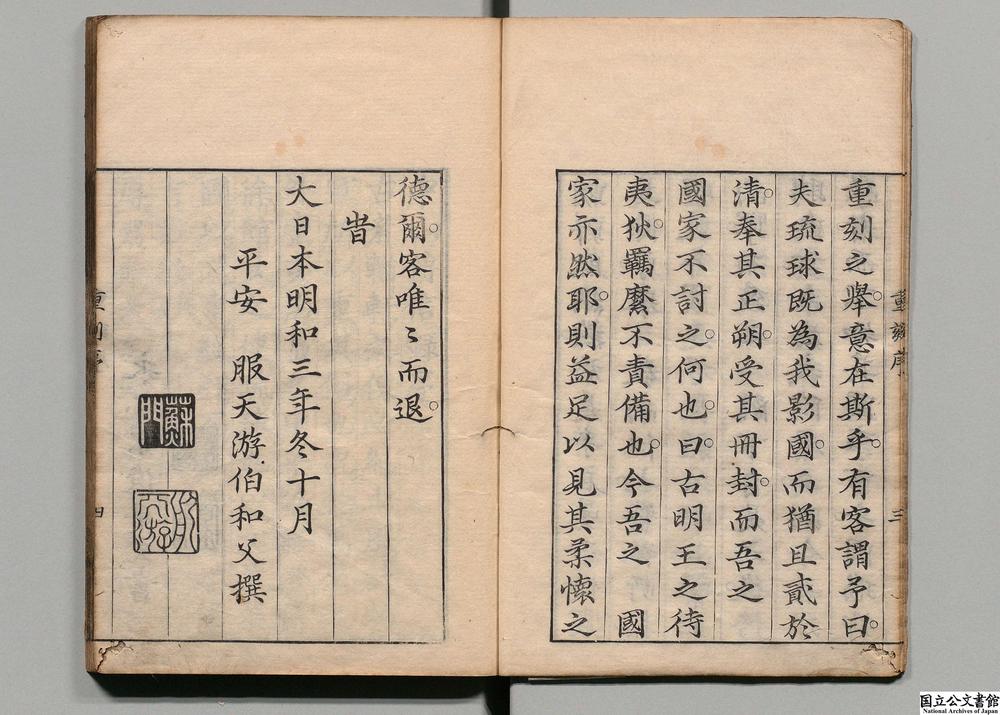 重刻之舉。意在斯乎。有客謂予曰。
夫琉球既為我影國。而猶且貳於
清。奉其正朔。受其冊封。而吾之
國家不討之。何也。曰。古明王之待
夷狄。羈縻不責備也。今吾之 國
家亦然耶。則益足以見其柔懷之
重刻序
三
德爾。客唯〻而退。
旹
大日本明和三年冬十月
平安 服天游伯和父撰
蘇門
重刻序
四
国立公文書館
National Archives of Japan